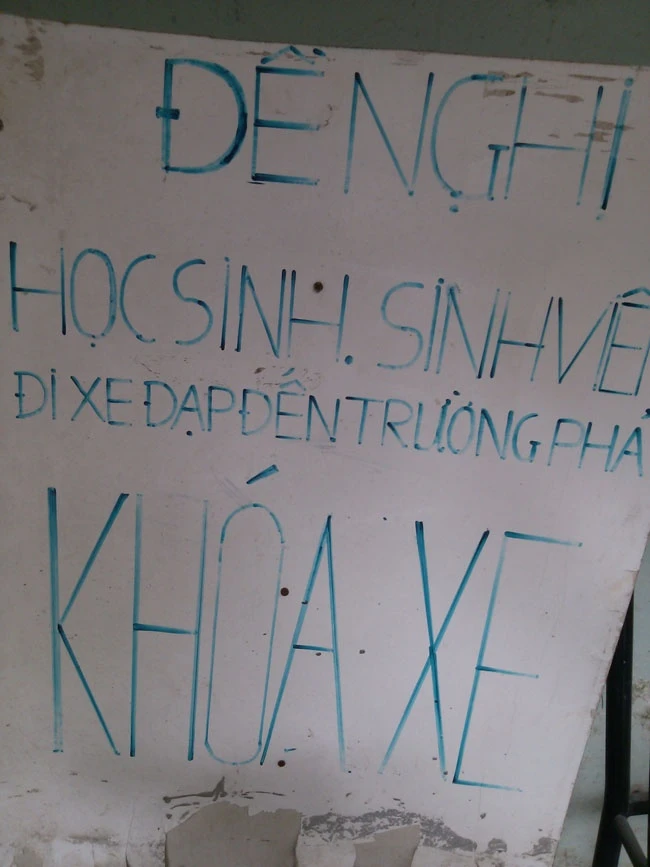 ĐỀ NGHỊ
HỌC SINH. SINH VIÊ
ĐI XE ĐẠP ĐẾN TRƯỜNG PHẢ
KHÓA XE